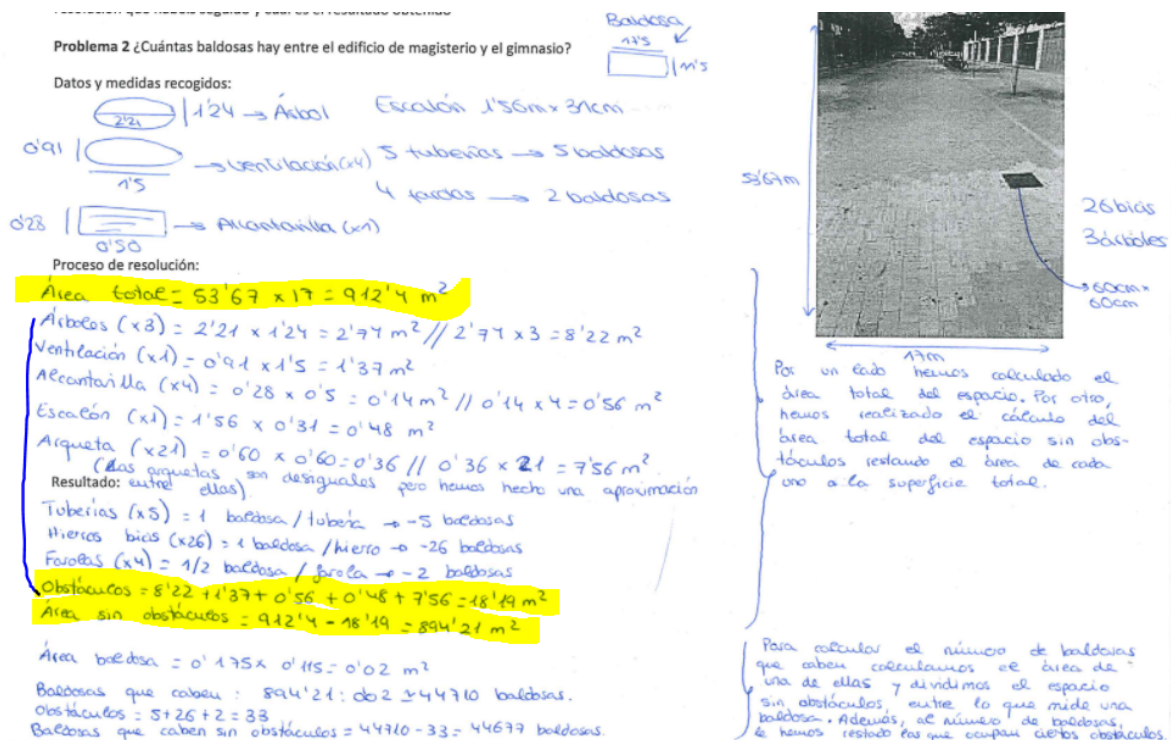 Problema 2 ¿Cuántas baldosas hay entre el edificio de magisterio y el gimnasio?
Baldosa
17'5
11'5
Datos y medidas recogidos:
2'21 1'24 → Árbol
Escalón 1'56m x 31cm
0'91 1'5 → ventilación (x4)
5 tuberías → 5 baldosas
4 farolas → 2 baldosas
0'28 0'50 → Alcantarilla (x1)
53'67m
26 bicis
3 árboles
60cm x
60cm
17m
Proceso de resolución:
Área total = 53'67 x 17 = 912'4 m²
Árboles (x3) = 2'21 x 1'24 = 2'74 m² // 2'74 x 3 = 8'22 m²
Ventilación (x1) = 0'91 x 1'5 = 1'37 m²
Alcantarilla (x4) = 0'28 x 0'5 = 0'14 m² // 0'14 x 4 = 0'56 m²
Escalón (x1) = 1'56 x 0'31 = 0'48 m²
Arqueta (x21) = 0'60 x 0'60 = 0'36 // 0'36 x 21 = 7'56 m²
(Las arquetas son desiguales pero hemos hecho una aproximación
Resultado: entre ellas).
Tuberías (x5) = 1 baldosa / tubería → -5 baldosas
Hierros bicis (x26) = 1 baldosa / hierro → -26 baldosas
Farolas (x4) = 1/2 baldosa / farola → -2 baldosas
Obstáculos = 8'22 + 1'37 + 0'56 + 0'48 + 7'56 = 18'19 m²
Área sin obstáculos = 912'4 - 18'19 = 894'21 m²
Área baldosa = 0'175 x 0'115 = 0'02 m²
Baldosas que caben : 894'21 : 0'02 ≃ 44710 baldosas.
Obstáculos = 5 + 26 + 2 = 33
Baldosas que caben sin obstáculos = 44710 - 33 = 44677 baldosas.
Por un lado hemos calculado el
área total del espacio. Por otro,
hemos realizado el cálculo del
área total del espacio sin obs-
táculos restando el área de cada
uno a la superficie total.
Para calcular el número de baldosas
que caben calculamos el área de
una de ellas y dividimos el espacio
sin obstáculos, entre lo que mide una
baldosa. Además, al número de baldosas,
le hemos restado las que ocupan ciertos obstáculos.